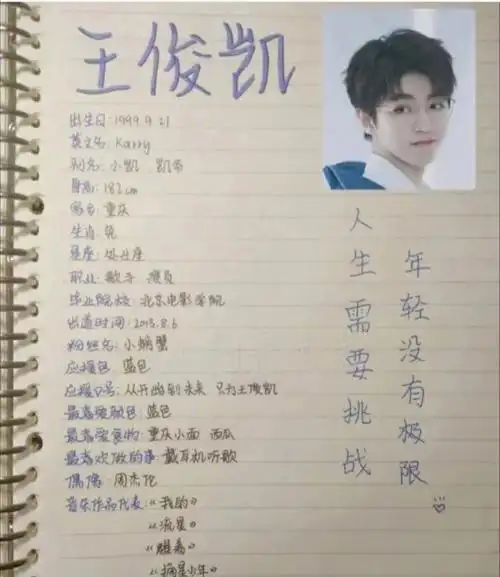 王俊凯
出生日: 1999.9.21
英文名: Karry
别名: 小凯 凯爷
身高: 182cm
家乡: 重庆
生肖: 兔
星座: 处女座
职业: 歌手 演员
毕业院校: 北京电影学院
出道时间: 2013.8.6
粉丝名: 小螃蟹
应援色: 蓝色
应援口号: 从开始到未来 只为王俊凯
最喜爱颜色: 蓝色
最喜爱食物: 重庆小面 西瓜
最喜欢做的事: 戴耳机听歌
偶像: 周杰伦
音乐作品代表:《我的》
《流星》
《醒着》
《摘星少年》
人生需要挑战
年轻没有极限